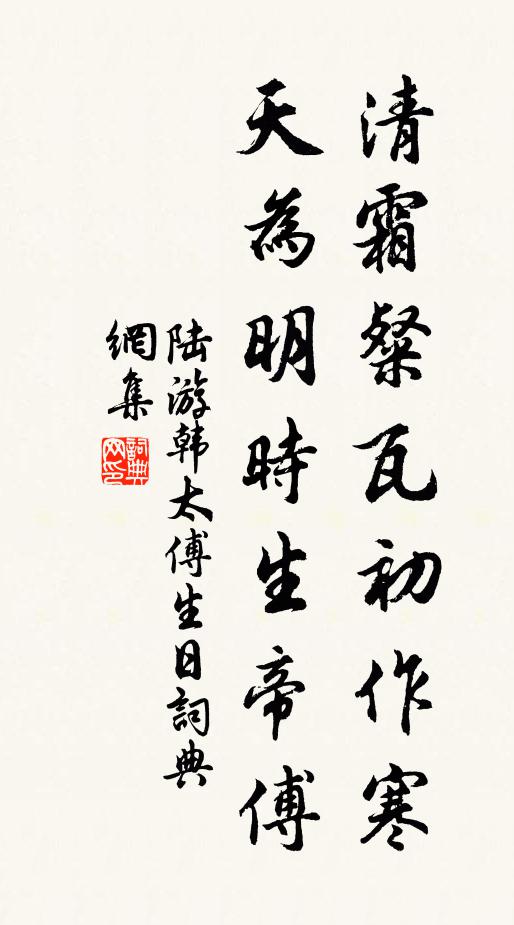 清霜粲瓦初作寒
天為明時生帝傅
陆游韩太傅生日詞典
網集
詞典
网印